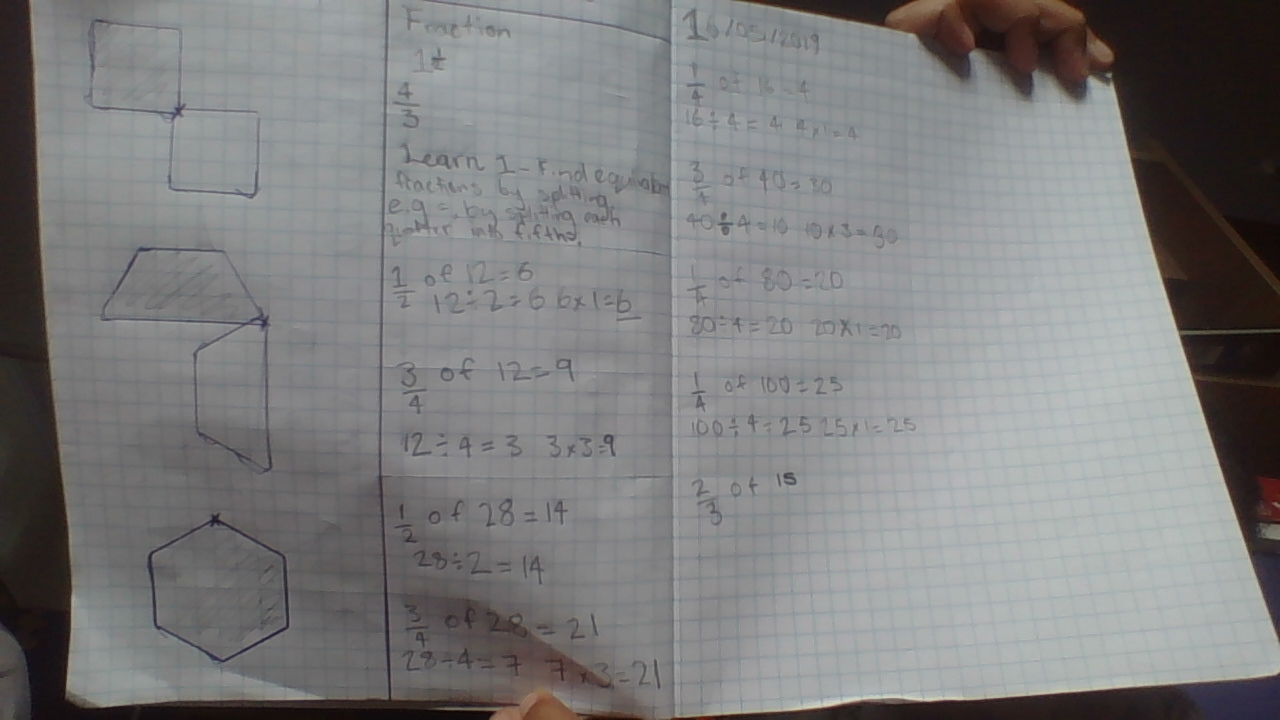 Fraction
1t
4/3
Learn 1 - Find equivalent
fractions by splitting.
e.g =. by splitting each
quatter into fifths.
1/2 of 12 = 6
12 ÷ 2 = 6 6 x 1 = 6
3/4 of 12 = 9
12 ÷ 4 = 3 3 x 3 = 9
1/2 of 28 = 14
28 ÷ 2 = 14
3/4 of 28 = 21
28 ÷ 4 = 7 7 x 3 = 21
16/05/2019
1/4 of 16 = 4
16 ÷ 4 = 4 4 x 1 = 4
3/4 of 40 = 30
40 ÷ 4 = 10 10 x 3 = 30
1/4 of 80 = 20
80 ÷ 4 = 20 20 x 1 = 20
1/4 of 100 = 25
100 ÷ 4 = 25 25 x 1 = 25
2/3 of 15